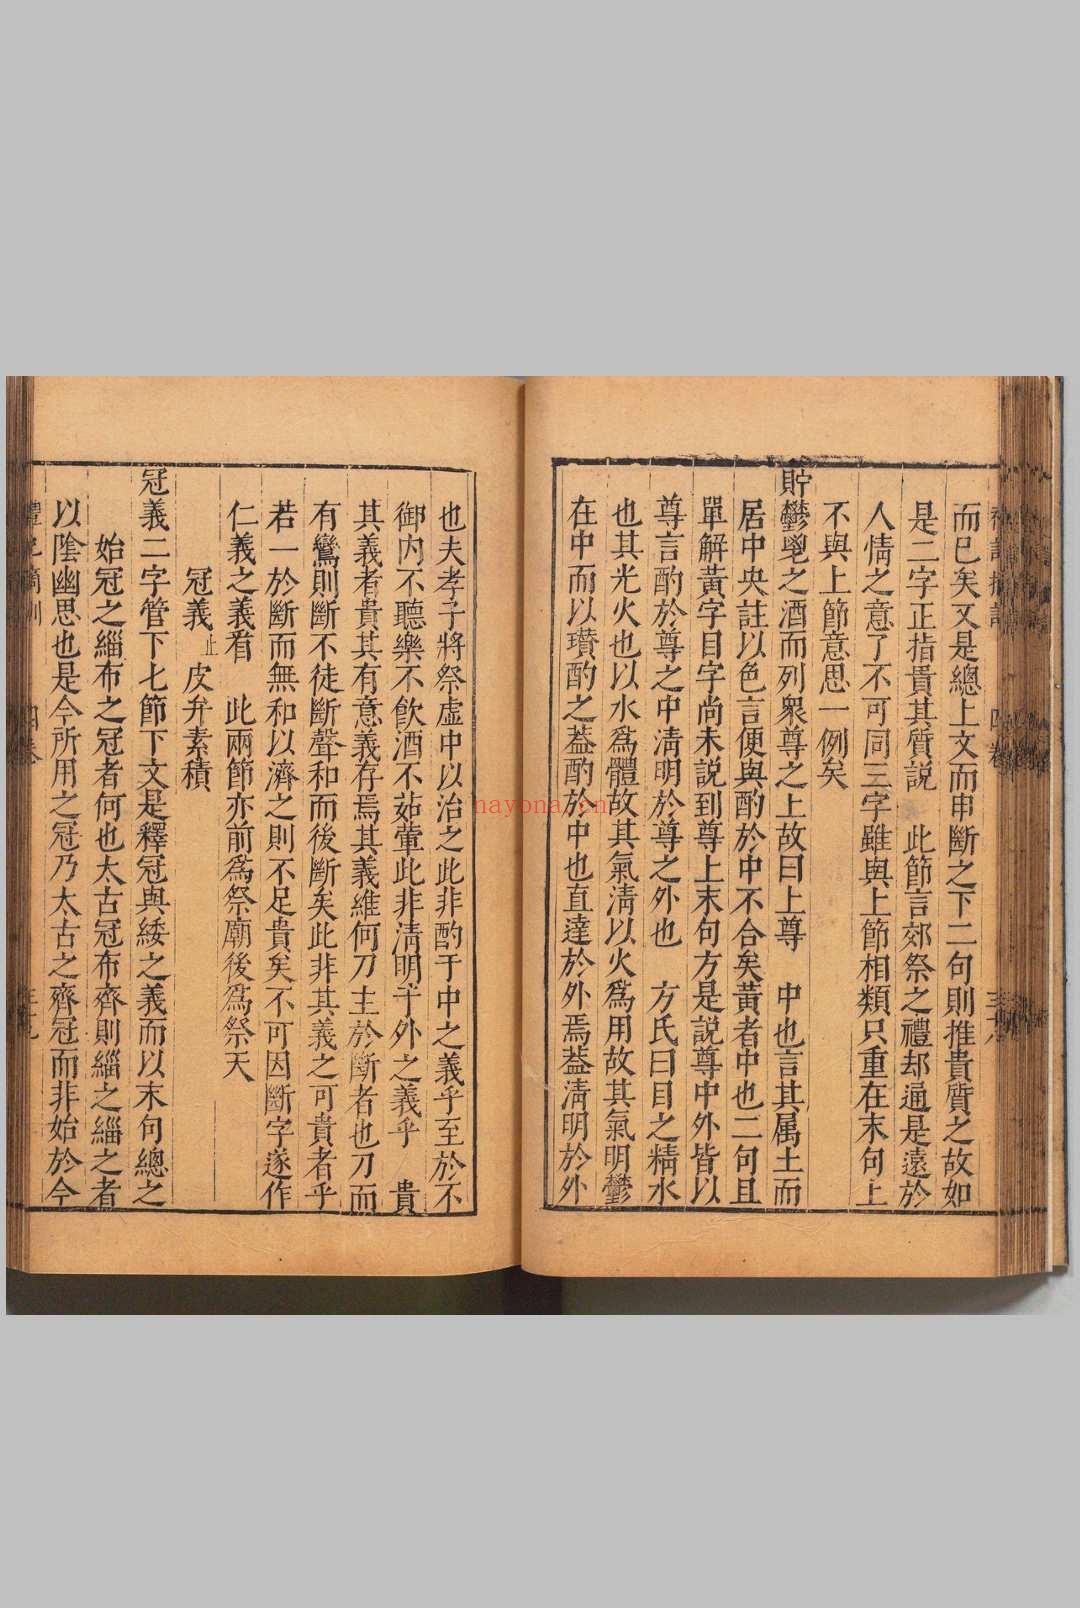 而已矣又是總上文而申斷之下二句則推貴質之故如
是二字正指貴其質說 此節言郊祭之禮却通是遠於
人情之意了不可同三字雖與上節相類只重在末句上
不與上節意思一例矣
貯鬱鬯之酒而列衆尊之上故曰上尊 中也言其属土而
居中央註以色言便與酌於中不合矣黃者中也二句且
單解黃字目字尚未說到尊上末句方是說尊中外皆以
尊言酌於尊之中淸明於尊之外也 方氏曰目之精水
也其光火也以水爲體故其氣淸以火爲用故其氣明鬱
在中而以瓚酌之葢酌於中也直達於外焉葢淸明於外
也夫孝子將祭虚中以治之此非酌于中之義乎至於不
御内不聽樂不飲酒不茹葷此非淸明于外之義乎 貴
其義者貴其有意義存焉其義維何刀主於斷者也刀而
有鸞則斷不徒斷聲和而後斷矣此非其義之可貴者乎
若一於斷而無和以濟之則不足貴矣不可因斷字遂作
仁義之義看 此兩節亦前爲祭廟後爲祭天
冠義止 皮弁素積
冠義二字管下七節下文是釋冠與緌之義而以末句總之
始冠之緇布之冠者何也太古冠布齊則緇之緇之者
以陰幽思也是今所用之冠乃太古之齊冠而非始於今
四卷
nayona.cn